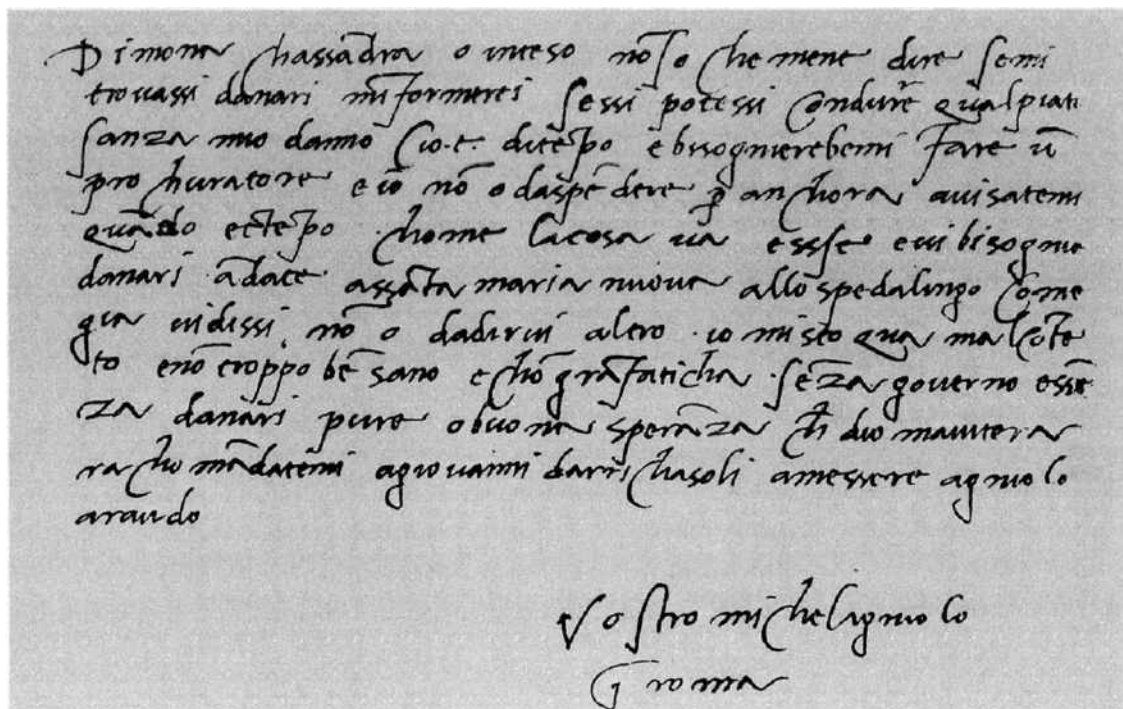 Dimona chassādra o inteso nō so che mene dire semi
trovassi danari mīformerei sessi potessi condurre qua lpiati
sanza mio danno cioe ditēpo ebisognierebemi fare ū
prochuratore e io nō o daspēdere p̄ anchora avisatemi
quādo ettēpo chome lacosa va esse evi bisognia
danari ādate assāta maria nuova allo spedalingo come
gia vidissi nō o dadirvi altro io misto qua malcōtē
to enō troppo bē sano e chō grā faticha sēza governo essē
za danari pure o buona sperāza ch̄ dio maiutera
rachomādatemi agiovanni darrichasoli amessere agniolo
araudo
Vostro michelagniolo
ī roma